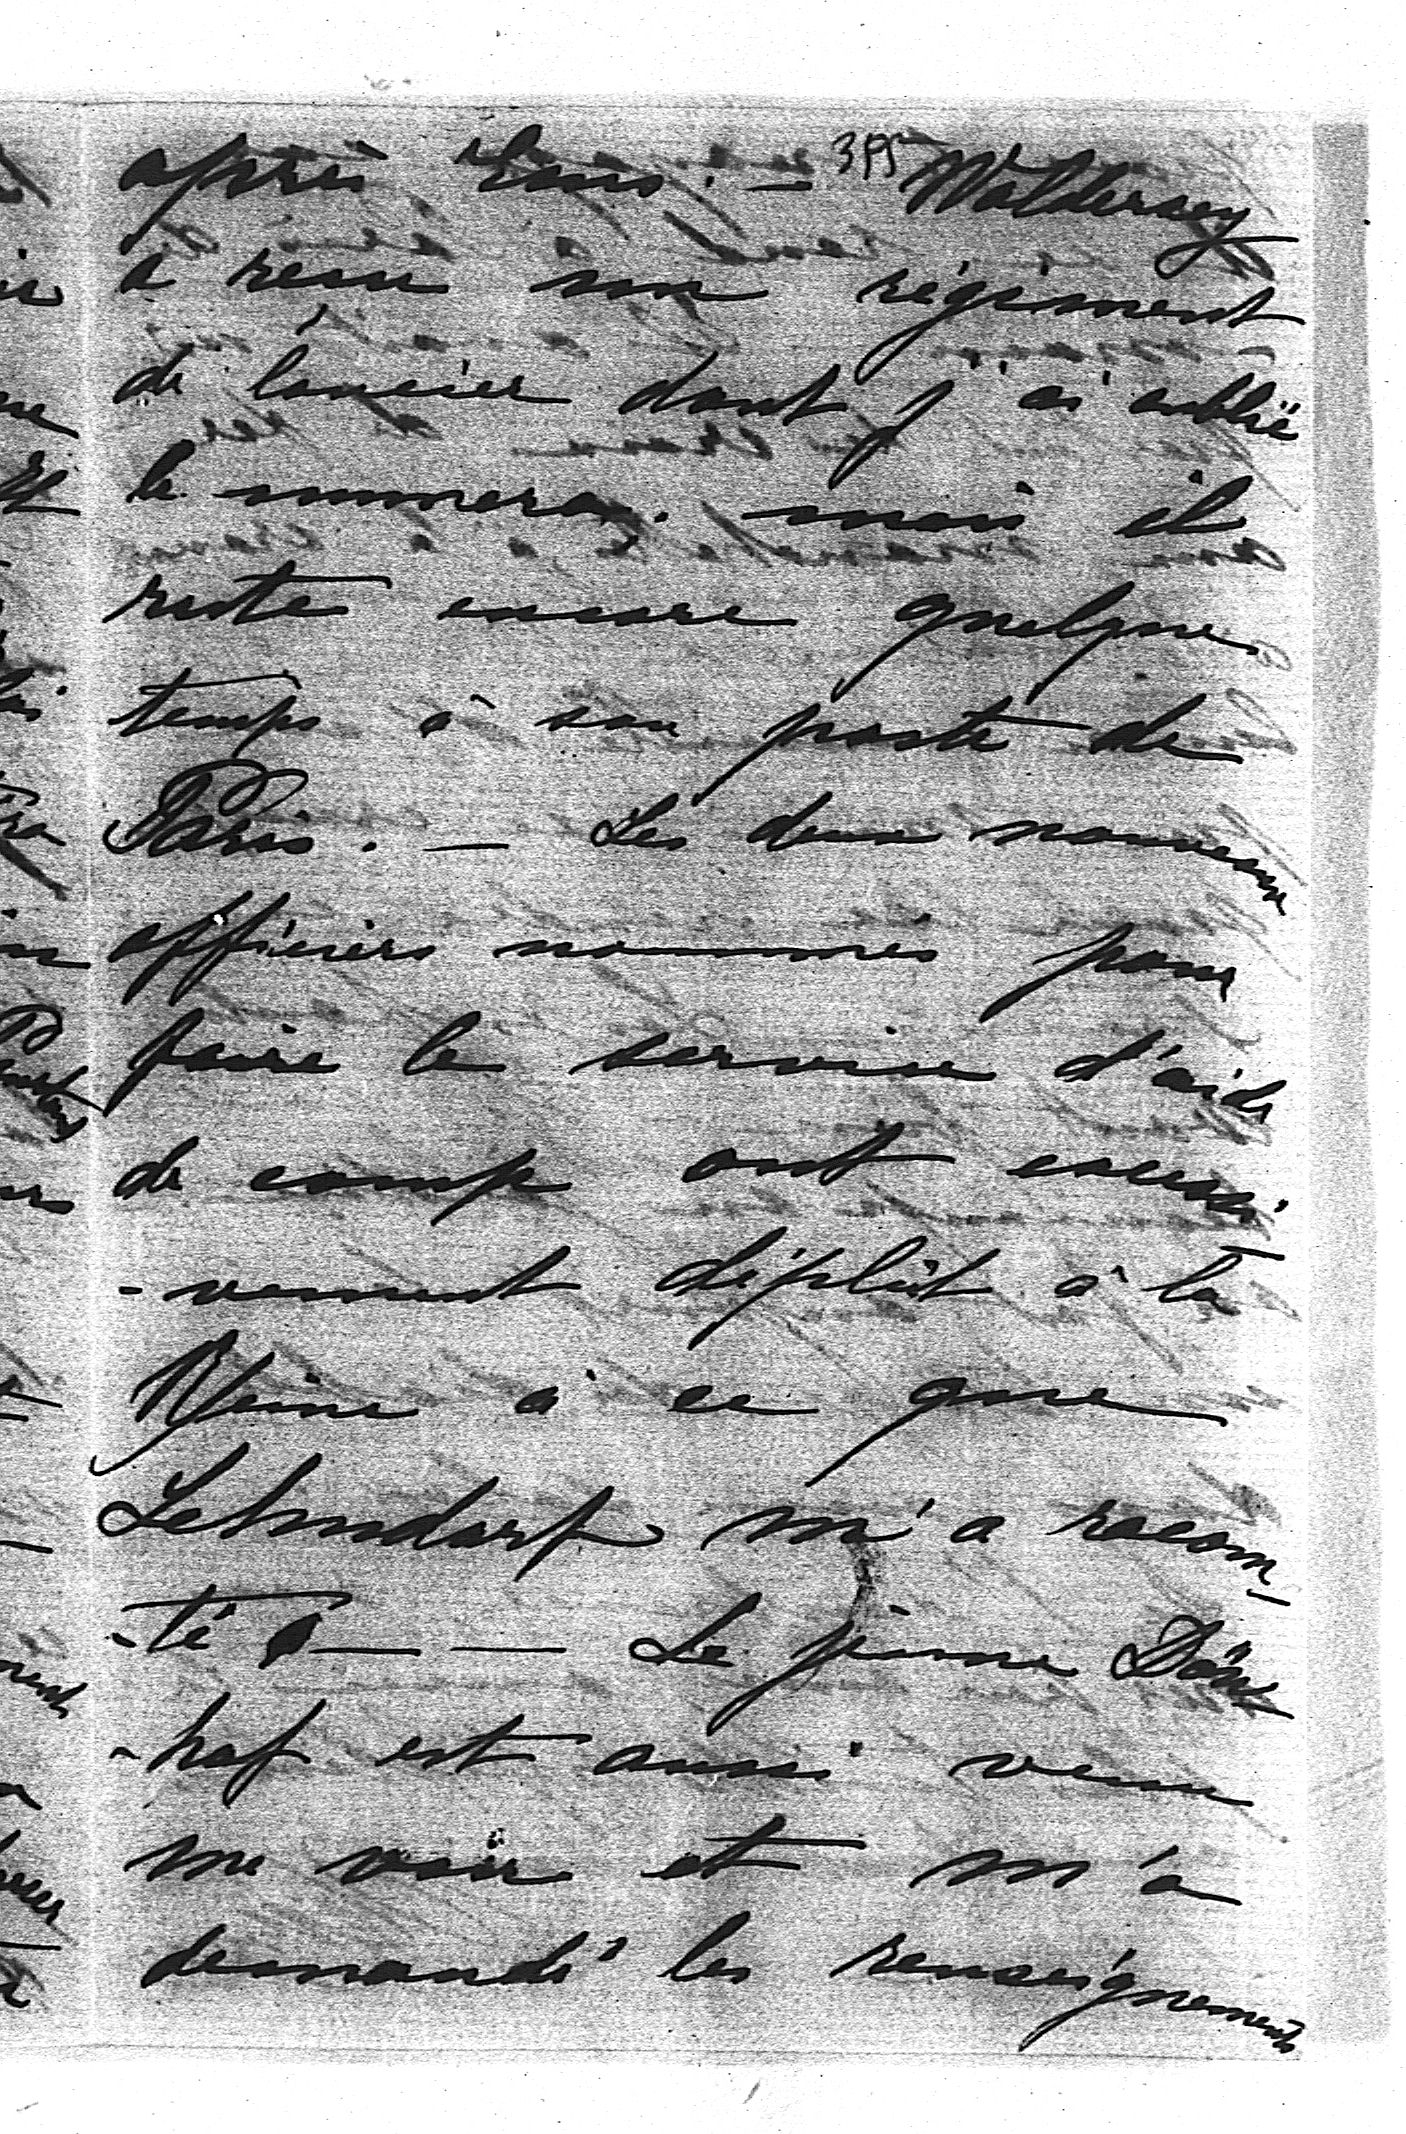 395
après Ems. — Waldersey
a reçu son régiment
de lancier dont j'ai oublié
le numero. mais il
reste encore quelque
temps à son poste de
Paris. — Les deux nouveaux
officiers nommés pour
faire le service d'aide
de camp ont excessi
-vement déplût à la
Reine à ce que
Lehndorf m'a racon
-té — — Le jeune Dön
-hof est aussi venu
me voir et m'a
demandé les renseignements